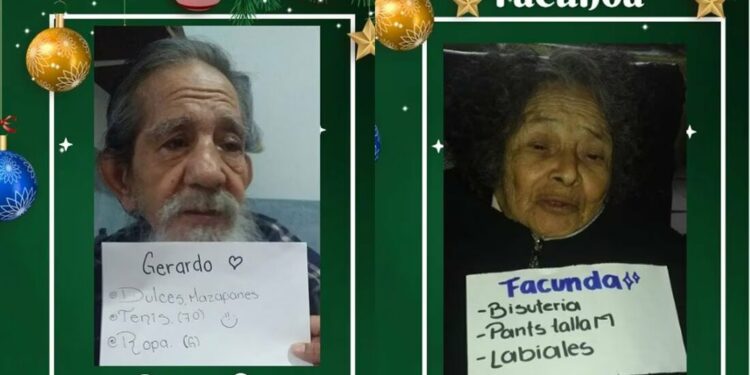 Gerardo ♡
Dulces, Mazapanes
Tenis. (70)
Ropa. (G)
Facunda
Facunda
- Bisuteria
- Pants talla M
- Labiales